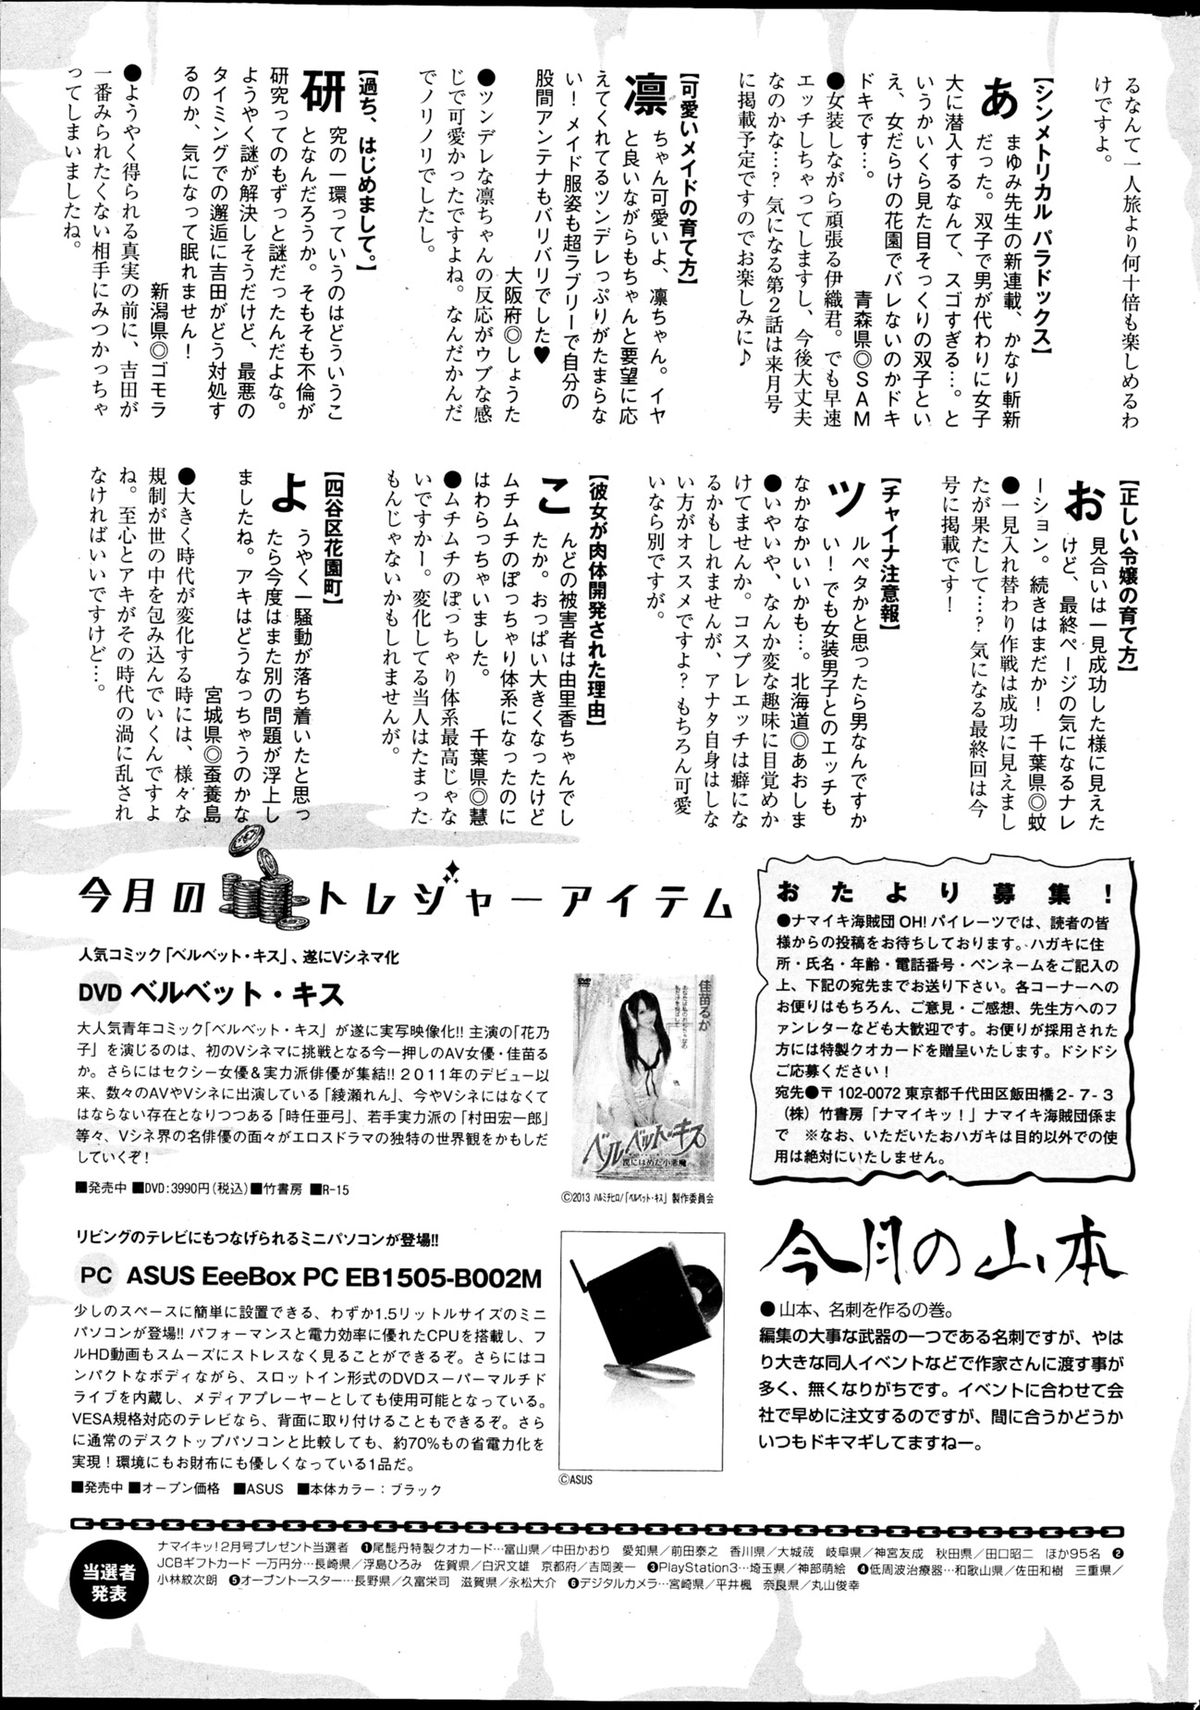 るなんて一人旅より何十倍も楽しめるわ
けですよ。
【シンメトリカル パラドックス】
あまゆみ先生の新連載、かなり斬新
だった。双子で男が代わりに女子
大に潜入するなんて、スゴすぎる…。と
いうかいくら見た目そっくりの双子とい
え、女だらけの花園でバレないのかドキ
ドキです…。　青森県◎SAM
●女装しながら頑張る伊織君。でも早速
エッチしちゃってしますし、今後大丈夫
なのかな…? 気になる第2話は来月号
に掲載予定ですのでお楽しみに♪
【可愛いメイドの育て方】
凛ちゃん可愛いよ、凛ちゃん。イヤ
と良いながらもちゃんと要望に応
えてくれてるツンデレっぷりがたまらな
い! メイド服姿も超ラブリーで自分の
股間アンテナもバリバリでした♥
大阪府◎しょうた
●ツンデレな凛ちゃんの反応がウブな感
じで可愛かったですよね。なんだかんだ
でノリノリでしたし。
【過ち、はじめまして。】
研究の一環っていうのはどういうこ
となんだろうか。そもそも不倫が
研究ってのもずっと謎だったんだよな。
ようやく謎が解決しそうだけど、最悪の
タイミングでの邂逅に吉田がどう対処す
るのか、気になって眠れません!
新潟県◎ゴモラ
●ようやく得られる真実の前に、吉田が
一番みられたくない相手にみつかっちゃ
ってしまいましたね。
【正しい令嬢の育て方】
お見合いは一見成功した様に見えた
けど、最終ページの気になるナレ
ーション。続きはまだか!　千葉県◎蚊
●一見入れ替わり作戦は成功に見えまし
たが果たして…? 気になる最終回は今
号に掲載です!
【チャイナ注意報】
ツルペタかと思ったら男なんですか
い! でも女装男子とのエッチも
なかなかいいかも…。北海道◎あおしま
●いやいや、なんか変な趣味に目覚めか
けてませんか。コスプレエッチは癖にな
るかもしれませんが、アナタ自身はしな
い方がオススメですよ? もちろん可愛
いなら別ですが。
【彼女が肉体開発された理由】
こんどの被害者は由里香ちゃんでし
たか。おっぱい大きくなったけど
ムチムチのぽっちゃり体系になったのに
はわらっちゃいました。　千葉県◎慧
●ムチムチのぽっちゃり体系最高じゃな
いですかー。変化してる当人はたまった
もんじゃないかもしれませんが。
【四谷区花園町】
ようやく一騒動が落ち着いたと思っ
たら今度はまた別の問題が浮上し
ましたね。アキはどうなっちゃうのかな
宮城県◎蚕養島
●大きく時代が変化する時には、様々な
規制が世の中を包み込んでいくんですよ
ね。至心とアキがその時代の渦に乱され
なければいいですけど…。
今月のトレジャーアイテム
人気コミック「ベルベット・キス」、遂にVシネマ化
DVD ベルベット・キス
大人気青年コミック「ベルベット・キス」が遂に実写映像化!! 主演の「花乃
子」を演じるのは、初のVシネマに挑戦となる今一押しのAV女優・佳苗る
か。さらにはセクシー女優&実力派俳優が集結!! 2011年のデビュー以
来、数々のAVやVシネに出演している「綾瀬れん」、今やVシネにはなくて
はならない存在となりつつある「時任亜弓」、若手実力派の「村田宏一郎」
等々、Vシネ界の名俳優の面々がエロスドラマの独特の世界観をかもしだ
していくぞ!
■発売中 ■DVD:3990円(税込) ■竹書房 ■R-15
DVD
佳苗るか
ベルベット・キス
罠にはめた小悪魔
©2013 ハルミチヒロ/「ベルベット・キス」製作委員会
リビングのテレビにもつなげられるミニパソコンが登場!!
PC ASUS EeeBox PC EB1505-B002M
少しのスペースに簡単に設置できる、わずか1.5リットルサイズのミニ
パソコンが登場!! パフォーマンスと電力効率に優れたCPUを搭載し、フ
ルHD動画もスムーズにストレスなく見ることができるぞ。さらにはコン
パクトなボディながら、スロットイン形式のDVDスーパーマルチド
ライブを内蔵し、メディアプレーヤーとしても使用可能となっている。
VESA規格対応のテレビなら、背面に取り付けることもできるぞ。さら
に通常のデスクトップパソコンと比較しても、約70%もの省電力化を
実現!環境にもお財布にも優しくなっている1品だ。
■発売中 ■オープン価格　■ASUS　■本体カラー：ブラック
©ASUS
おたより募集!
●ナマイキ海賊団 OH! パイレーツでは、読者の皆
様からの投稿をお待ちしております。ハガキに住
所・氏名・年齢・電話番号・ペンネームをご記入の
上、下記の宛先までお送り下さい。各コーナーへの
お便りはもちろん、ご意見・ご感想、先生方へのフ
ァンレターなども大歓迎です。お便りが採用された
方には特製クオカードを贈呈いたします。ドシドシ
ご応募ください!
宛先●〒102-0072 東京都千代田区飯田橋2-7-3
(株)竹書房「ナマイキッ!」ナマイキ海賊団係ま
で　※なお、いただいたおハガキは目的以外での使
用は絶対にいたしません。
今月の山本
●山本、名刺を作るの巻。
編集の大事な武器の一つである名刺ですが、やは
り大きな同人イベントなどで作家さんに渡す事が
多く、無くなりがちです。イベントに合わせて会
社で早めに注文するのですが、間に合うかどうか
いつもドキマギしてますねー。
当選者発表
ナマイキッ!2月号プレゼント当選者　❶尾髭丹特製クオカード…富山県/中田かおり　愛知県/前田泰之　香川県/大城蔵　岐阜県/神宮友成　秋田県/田口昭二　ほか95名 ❷
JCBギフトカード 一万円分…長崎県/浮島ひろみ　佐賀県/白沢文雄　京都府/吉岡美一　❸PlayStation3…埼玉県/神部萌絵　❹低周波治療器…和歌山県/佐田和樹　三重県/
小林紋次朗　❺オーブントースター…長野県/久富栄司　滋賀県/永松大介　❻デジタルカメラ…宮崎県/平井楓　奈良県/丸山俊幸